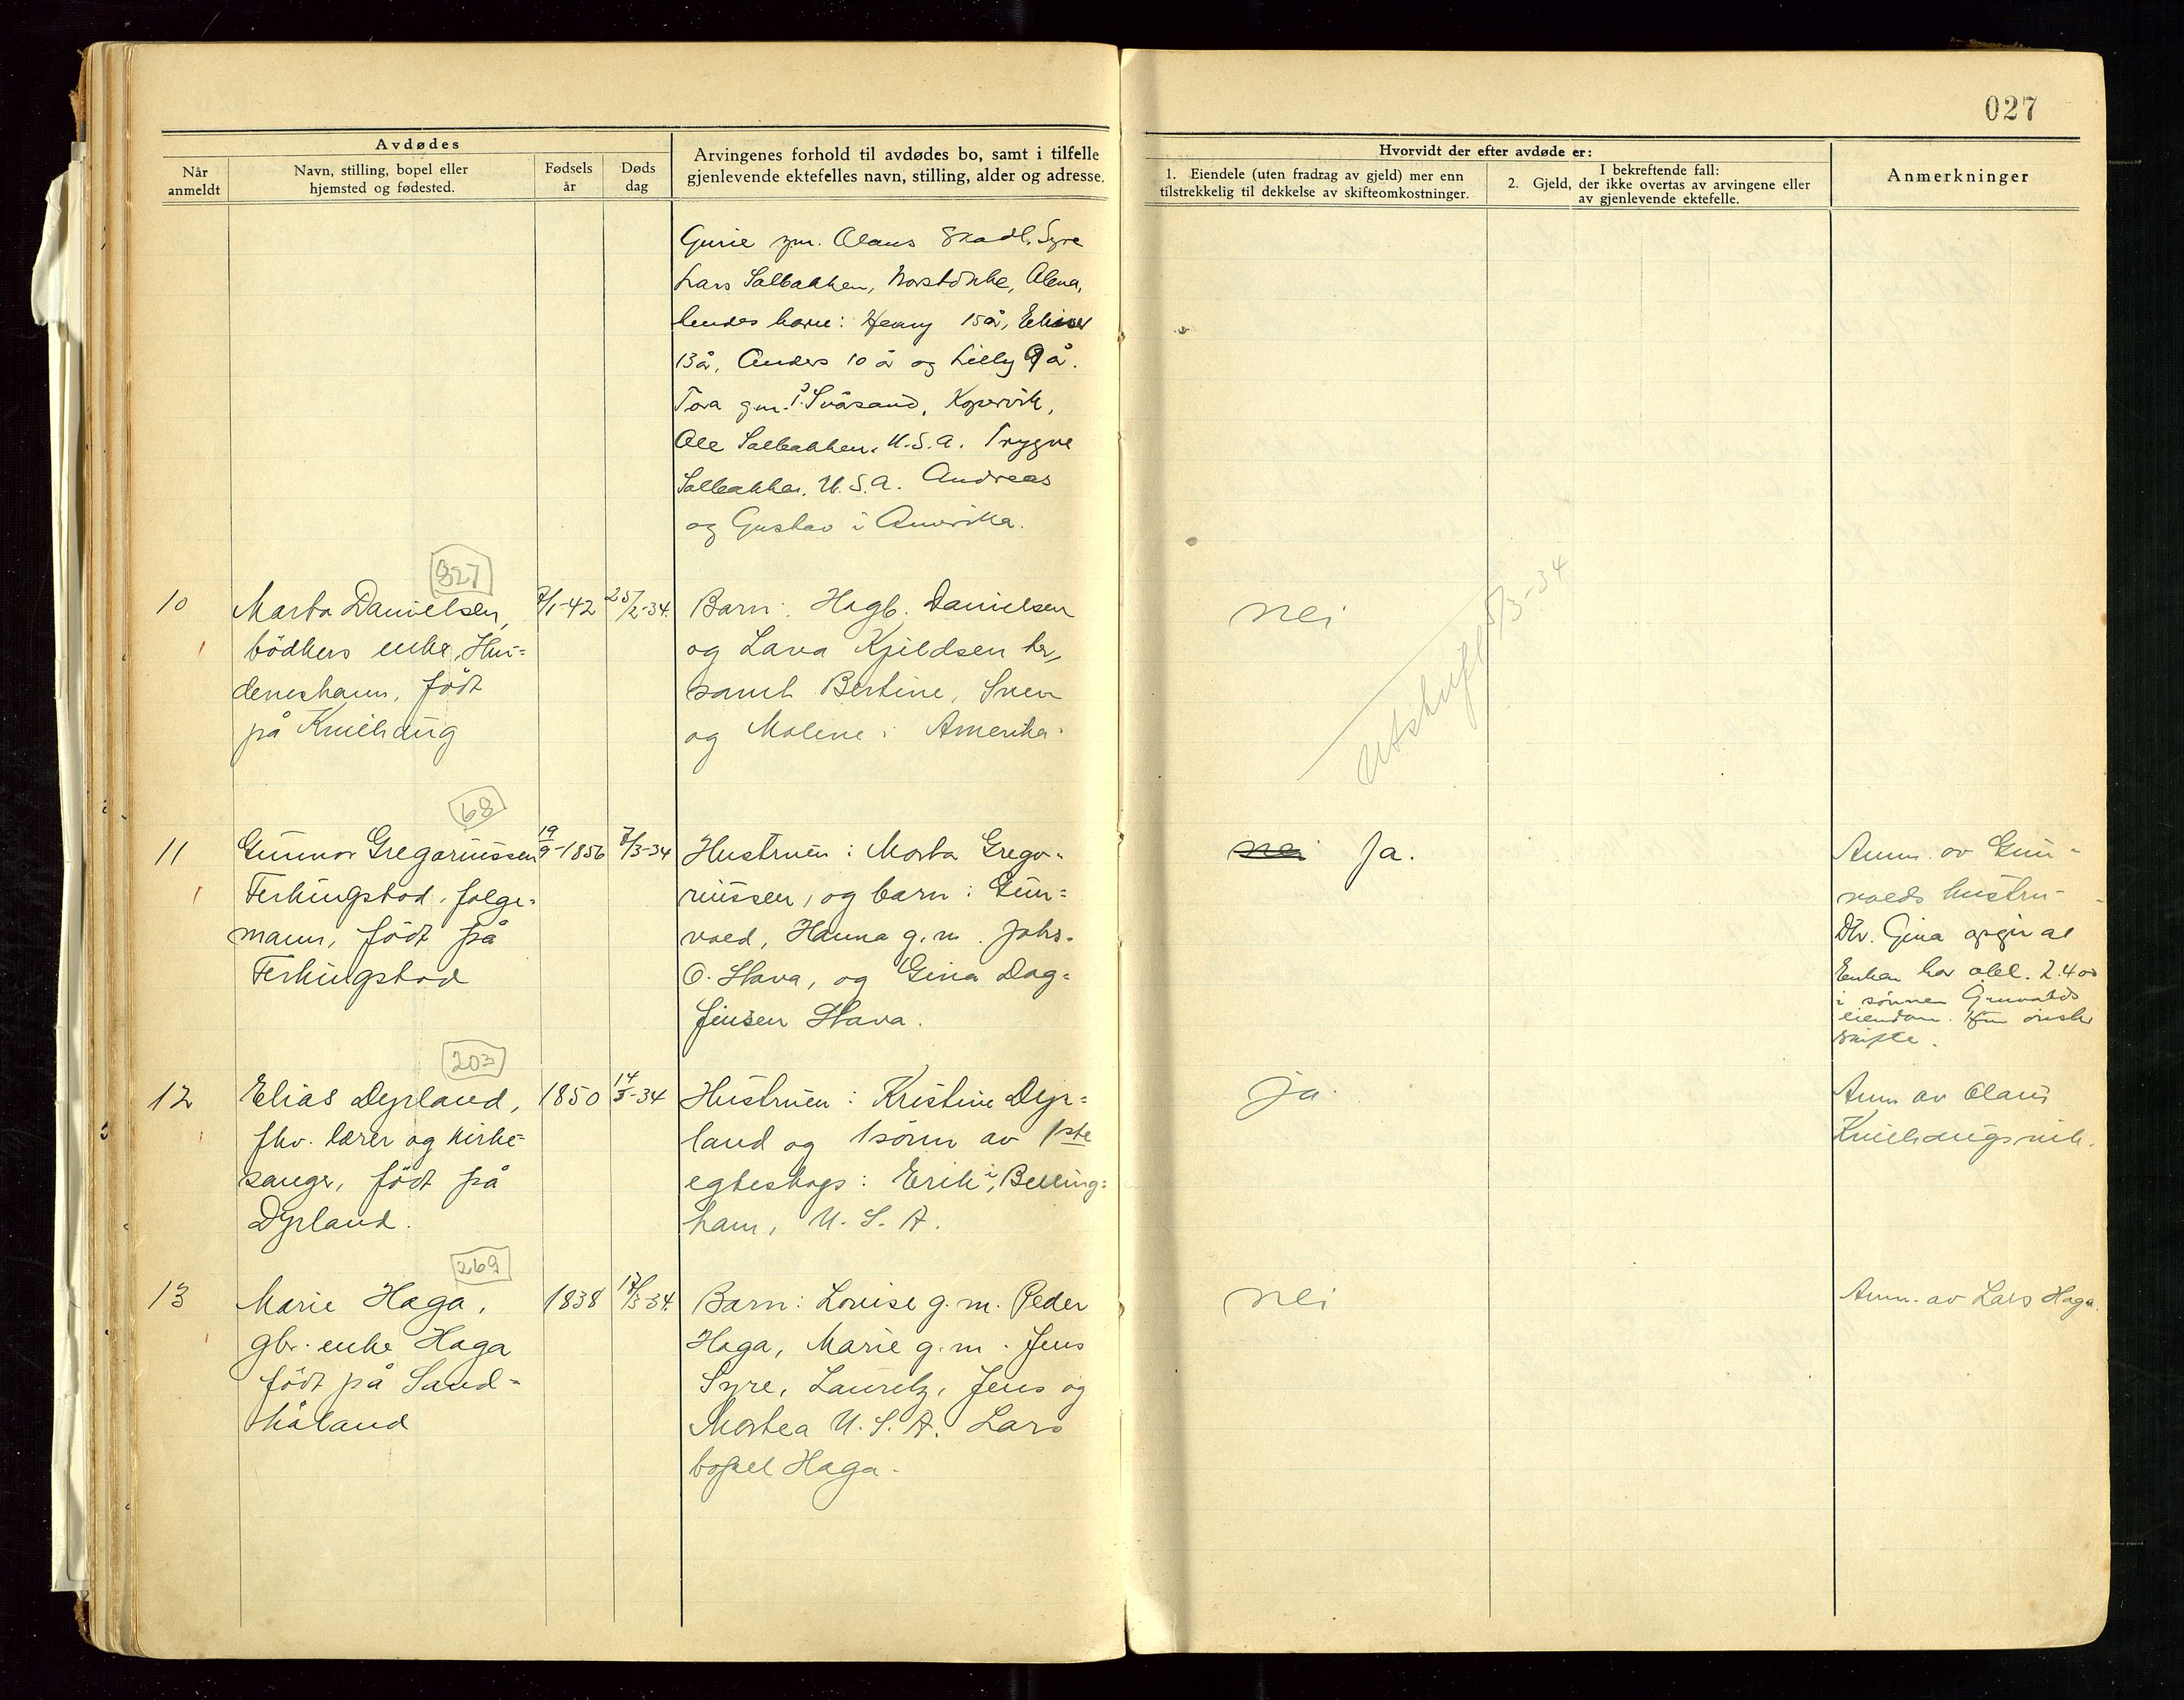 027
Avdødes
Når
anmeldt
Navn, stilling, bopel eller
hjemsted og fødested.
Fødsels
år
Døds
dag
Arvingenes forhold til avdødes bo, samt i tilfelle
gjenlevende ektefelles navn, stilling, alder og adresse.
Hvorvidt der efter avdøde er:
1. Eiendele (uten fradrag av gjeld) mer enn
tilstrekkelig til dekkelse av skifteomkostninger.
I bekreftende fall:
2. Gjeld, der ikke overtas av arvingene eller
av gjenlevende ektefelle.
Anmerkninger
Gurie gm. Olaus Stadl. Syre
Lars Solbakken, Alena,
hendes barn: Henny 15 år,
13 å, Anders 10 å og Lilly 9 å.
Tora gm. Svåsand, Kopervik,
Ole Solbakken, U.S.A. Trygve
Solbakken, U.S.A. Andreas
og Gustav i Amerika.
327
10
Marta Danielsen,
bödkers enke, Hu=
deneshavn, födt
på Knehaug
2/1-42
25/2-34.
Barn: Hagb. Danielsen
og Lava Kjeldsen her,
samt Bertine, Sven
og Malene i Amerika.
nei
Utskrift 5/3-34
68
11
Gunnar Gregoriussen
Ferkingstad, folge=
mann, födt på
Ferkingstad
19/9-1856
7/3-34
Hustruen: Marta Grego=
riussen, og barn: Gun=
vald, Hanna g.m. Johs.
O. Stava, og Gina Dag=
finsen Stava.
nei Ja.
Anm. av Gun=
valds hustru
Dtr. Gina opgir at
Enken har obl. 2.400
i sønnen Gunvalds
eiendom. Hun ønsker
skifte.
203
12
Elias Dyrland,
fhv. lærer og kirke=
sanger, födt på
Dyrland.
1850
14/3-34
Hustruen: Kristine Dyr=
land og 1 sönn av 1ste
egteskap: Erik i, Belling=
ham, U.S.A.
ja.
Anm av Olaus
Knehaugsvik.
269
13
Marie Haga,
gbr. enke Haga
födt på Sand=
håland
1838
17/3-34.
Barn: Louise g.m. Peder
Haga, Marie g.m. Jens
Syre, Lauritz, Jens og
Martea U.S.A. Lars
bopel Haga.
nei
Anm. av Lars Haga.